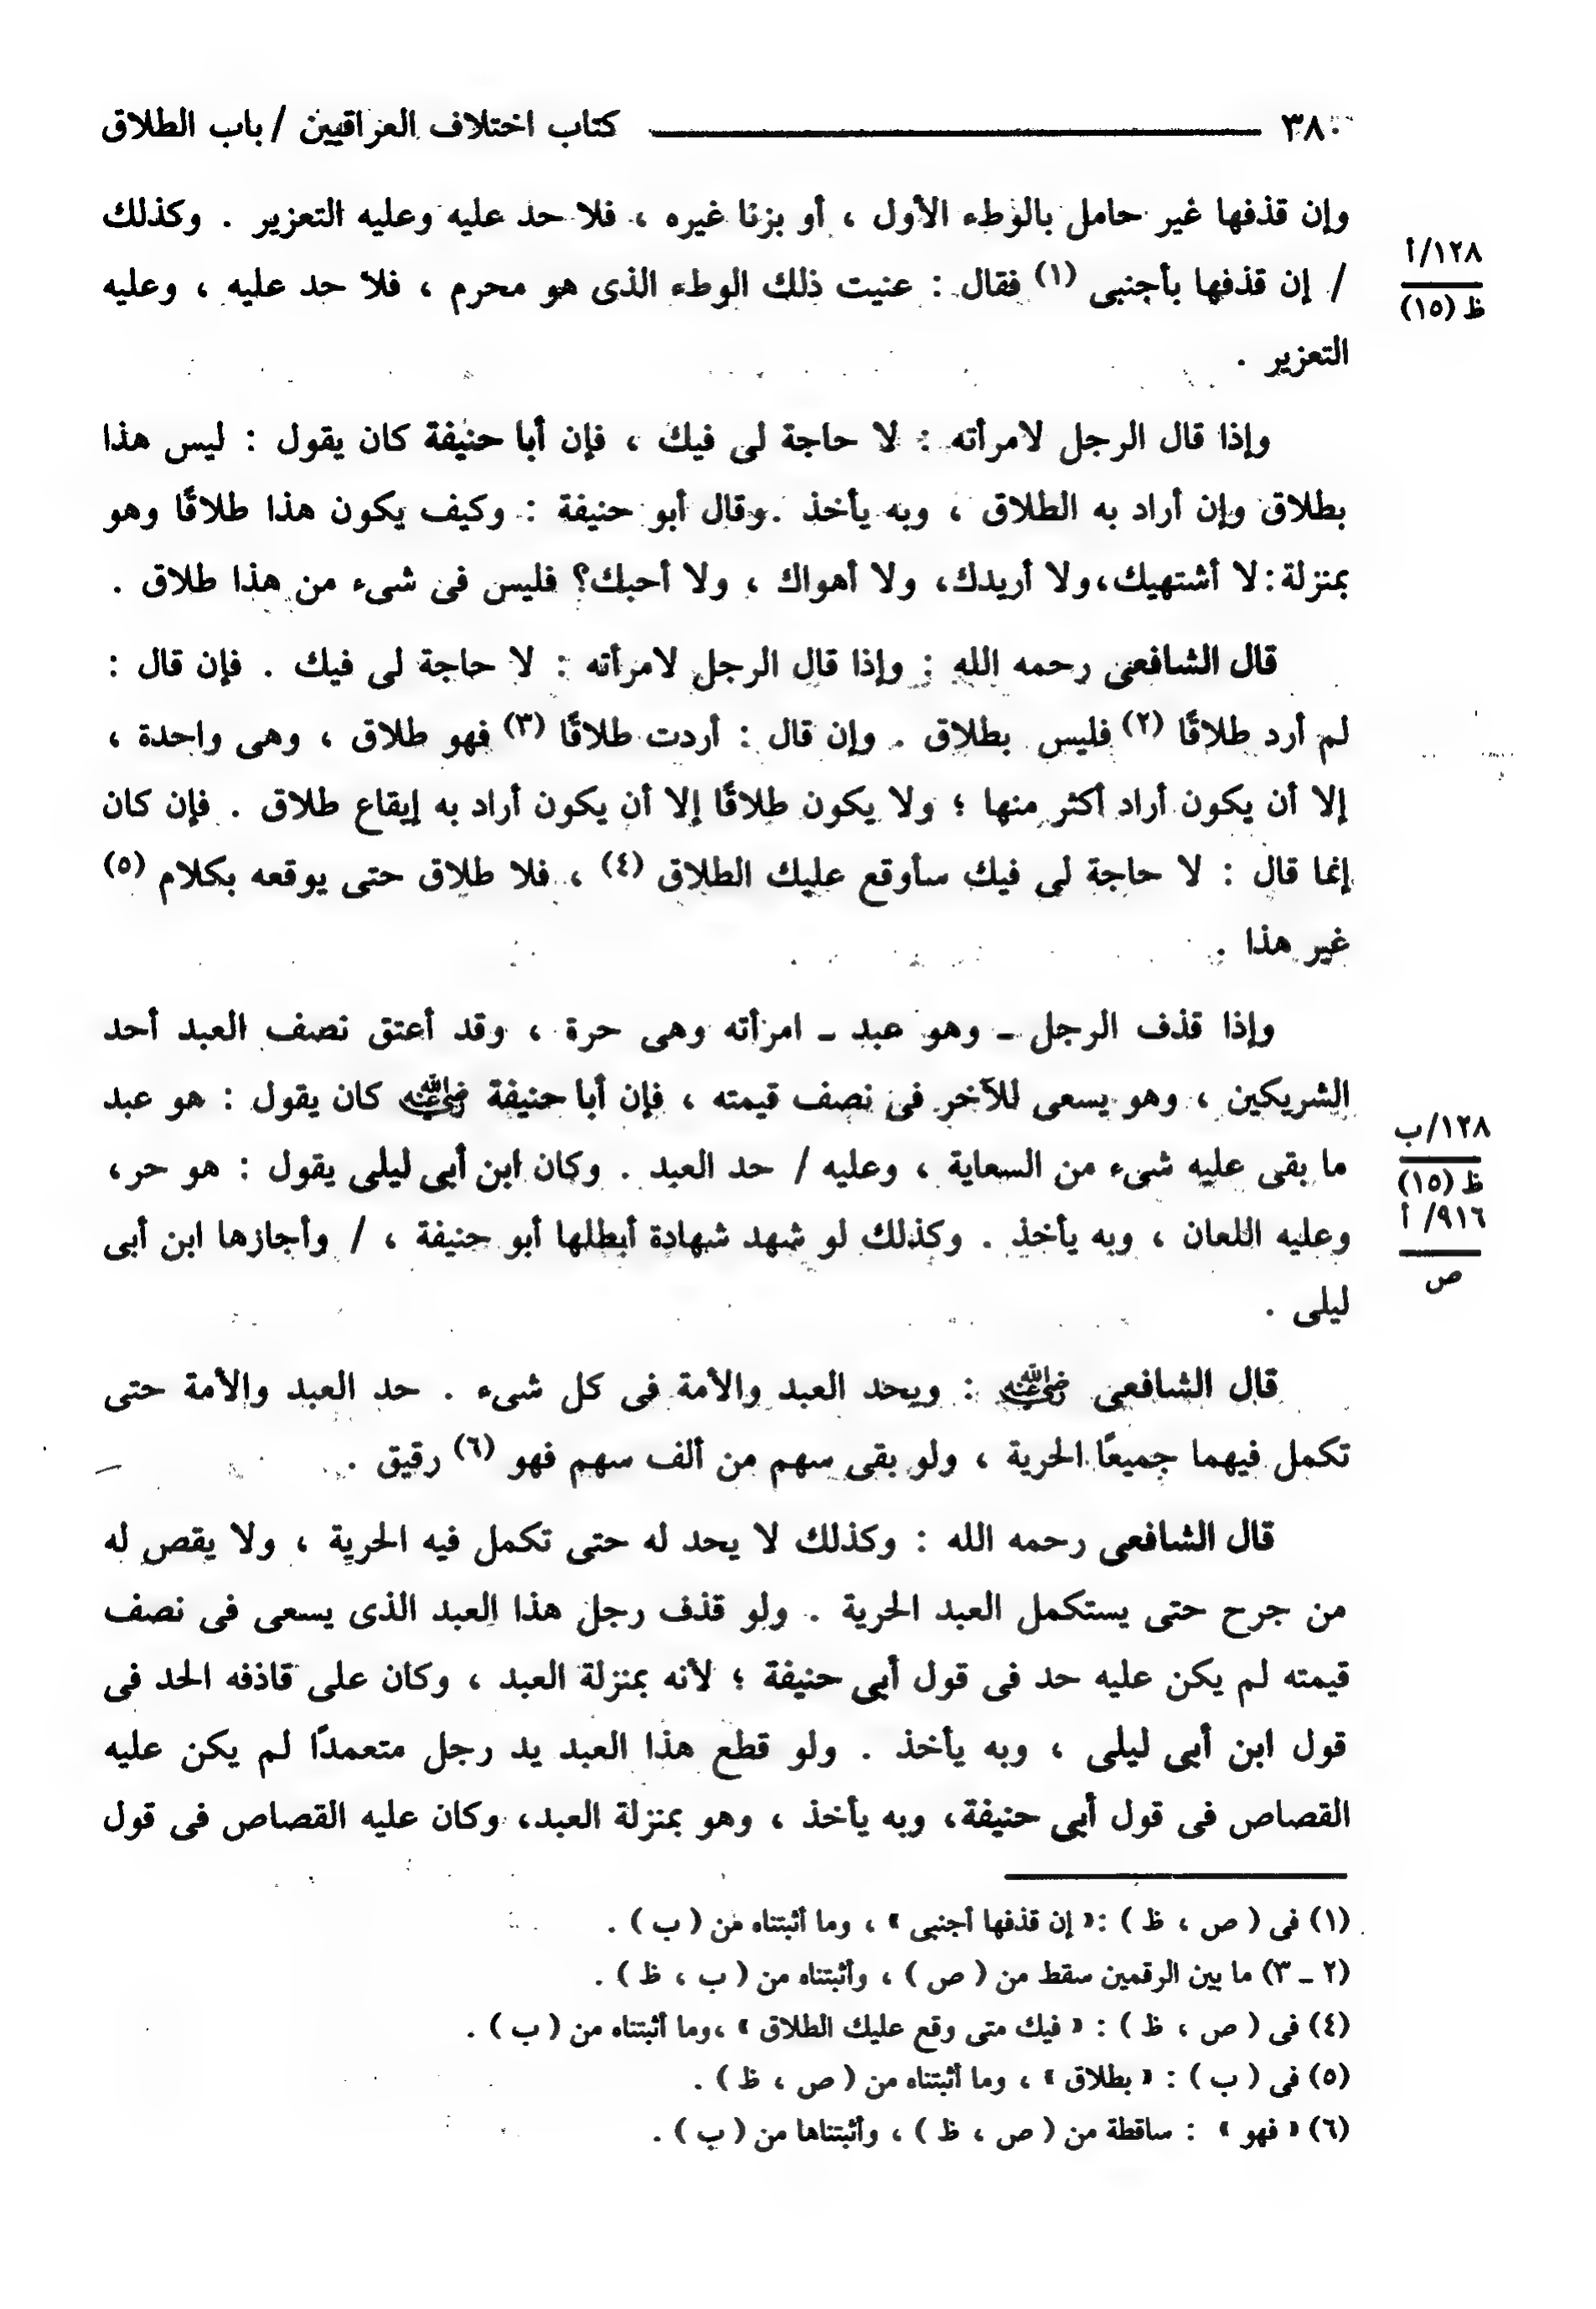 ٣٨٠ كتاب اختلاف العراقيين / باب الطلاق
وإن قذفها غير حامل بالوطء الأول ، أو بزنا غيره ، فلا حد عليه وعليه التعزير . وكذلك
/ إن قذفها بأجنبى (١) فقال : عنيت ذلك الوطء الذى هو محرم ، فلا حد عليه ، وعليه
التعزير .
١٢٨/أ
ظ (١٥)
وإذا قال الرجل لامرأته : لا حاجة لى فيك ، فإن أبا حنيفة كان يقول : ليس هذا
بطلاق وإن أراد به الطلاق ، وبه يأخذ . وقال أبو حنيفة : وكيف يكون هذا طلاقًا وهو
بمنزلة : لا أشتهيك، ولا أريدك، ولا أهواك ، ولا أحبك؟ فليس فى شىء من هذا طلاق .
قال الشافعى رحمه الله : وإذا قال الرجل لامرأته : لا حاجة لى فيك . فإن قال :
لم أرد طلاقًا (٢) فليس بطلاق . وإن قال : أردت طلاقًا (٣) فهو طلاق ، وهى واحدة ،
إلا أن يكون أراد أكثر منها ؛ ولا يكون طلاقًا إلا أن يكون أراد به إيقاع طلاق . فإن كان
إنما قال : لا حاجة لى فيك سأوقع عليك الطلاق (٤) ، فلا طلاق حتى يوقعه بكلام (٥)
غير هذا .
وإذا قذف الرجل ـ وهو عبد ـ امرأته وهى حرة ، وقد أعتق نصف العبد أحد
الشريكين ، وهو يسعى للآخر فى نصف قيمته ، فإن أبا حنيفة رضي الله عنه كان يقول : هو عبد
ما بقى عليه شىء من السعاية ، وعليه / حد العبد . وكان ابن أبى ليلى يقول : هو حر،
وعليه اللعان ، وبه يأخذ . وكذلك لو شهد شهادة أبطلها أبو حنيفة ، / وأجازها ابن أبى
ليلى .
١٢٨/ب
ظ (١٥)
٩١٦/ أ
ص
قال الشافعى رضي الله عنه : ويحد العبد والأمة فى كل شىء . حد العبد والأمة حتى
تكمل فيهما جميعًا الحرية ، ولو بقى سهم من ألف سهم فهو (٦) رقيق .
قال الشافعى رحمه الله : وكذلك لا يحد له حتى تكمل فيه الحرية ، ولا يقص له
من جرح حتى يستكمل العبد الحرية . ولو قذف رجل هذا العبد الذى يسعى فى نصف
قيمته لم يكن عليه حد فى قول أبى حنيفة ؛ لأنه بمنزلة العبد ، وكان على قاذفه الحد فى
قول ابن أبى ليلى ، وبه يأخذ . ولو قطع هذا العبد يد رجل متعمدًا لم يكن عليه
القصاص فى قول أبى حنيفة، وبه يأخذ ، وهو بمنزلة العبد، وكان عليه القصاص فى قول
(١) فى ( ص ، ظ ) : « إن قذفها أجنبى » ، وما أثبتناه من ( ب ) .
(٢ ـ ٣) ما بين الرقمين سقط من ( ص ) ، وأثبتناه من ( ب ، ظ ) .
(٤) فى ( ص ، ظ ) : « فيك متى وقع عليك الطلاق » ، وما أثبتناه من ( ب ) .
(٥) فى ( ب ) : « بطلاق » ، وما أثبتناه من ( ص ، ظ ) .
(٦) « فهو » : ساقطة من ( ص ، ظ ) ، وأثبتناها من ( ب ) .